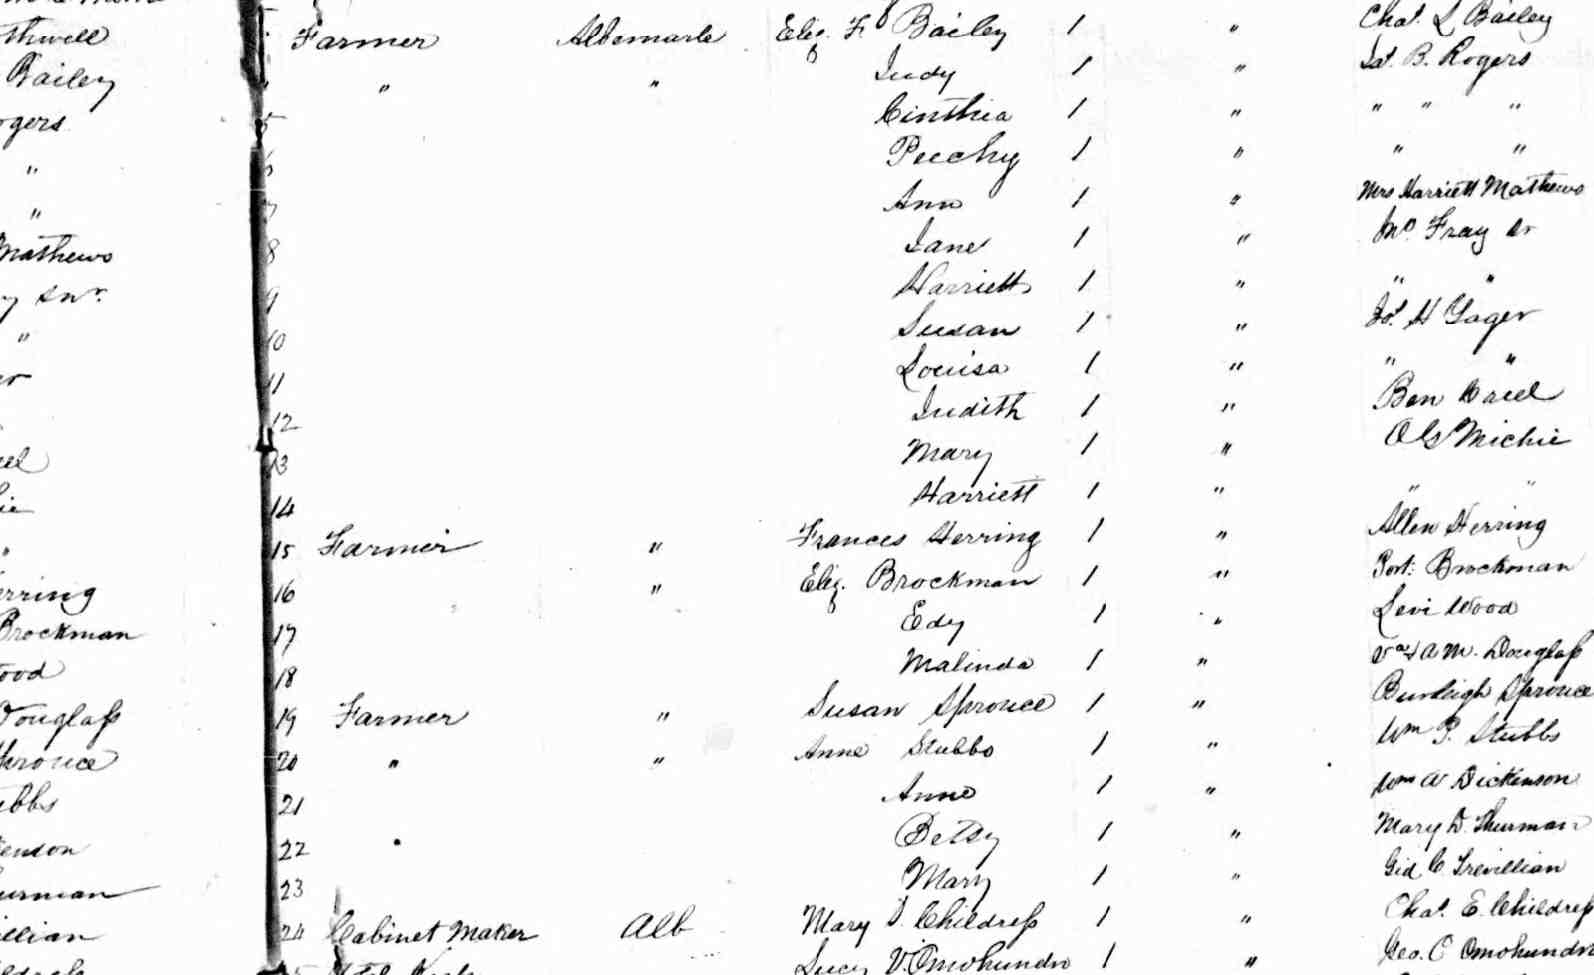 thwell Farmer Albemarle Eliz. F. Bailey 1 " Chas. L Bailey
Bailey " " Judy 1 " Jas. B. Rogers
ogers 5 Cinthia 1 " " " "
" 6 Peechy 1 " " "
" 7 Ann 1 " Mrs Harriett Mathews
Mathews 8 Jane 1 " Jno. Fray Sr
y Snr. 9 Harriett 1 " " "
" 10 Susan 1 " Jos. H Yager
er 11 Louisa 1 " " "
12 Judith 1 " Ben
el 13 Mary 1 " Michie
ie 14 Harriett 1 " " "
" 15 Farmer " Frances Herring 1 " Allen Herring
erring 16 " Eliz. Brockman 1 " Port: Brockman
Brockman 17 Edy 1 " Levi Wood
ood 18 Malinda 1 " A M. Douglass
Douglass 19 Farmer " Susan Sprouce 1 " Burleigh Sprouce
prouce 20 " " Anne Stubbs 1 " Wm P. Stubbs
ubbs 21 Anne 1 " Wm A Dickenson
enson 22 Betsy 1 " Mary D. Thurman
urman 23 Mary 1 " Gid C Trevillian
illian 24 Cabinet Maker Alb Mary J. Childress 1 " Chas. E. Childress
ldress Lucy V. Omohundro 1 " Geo. C Omohundro